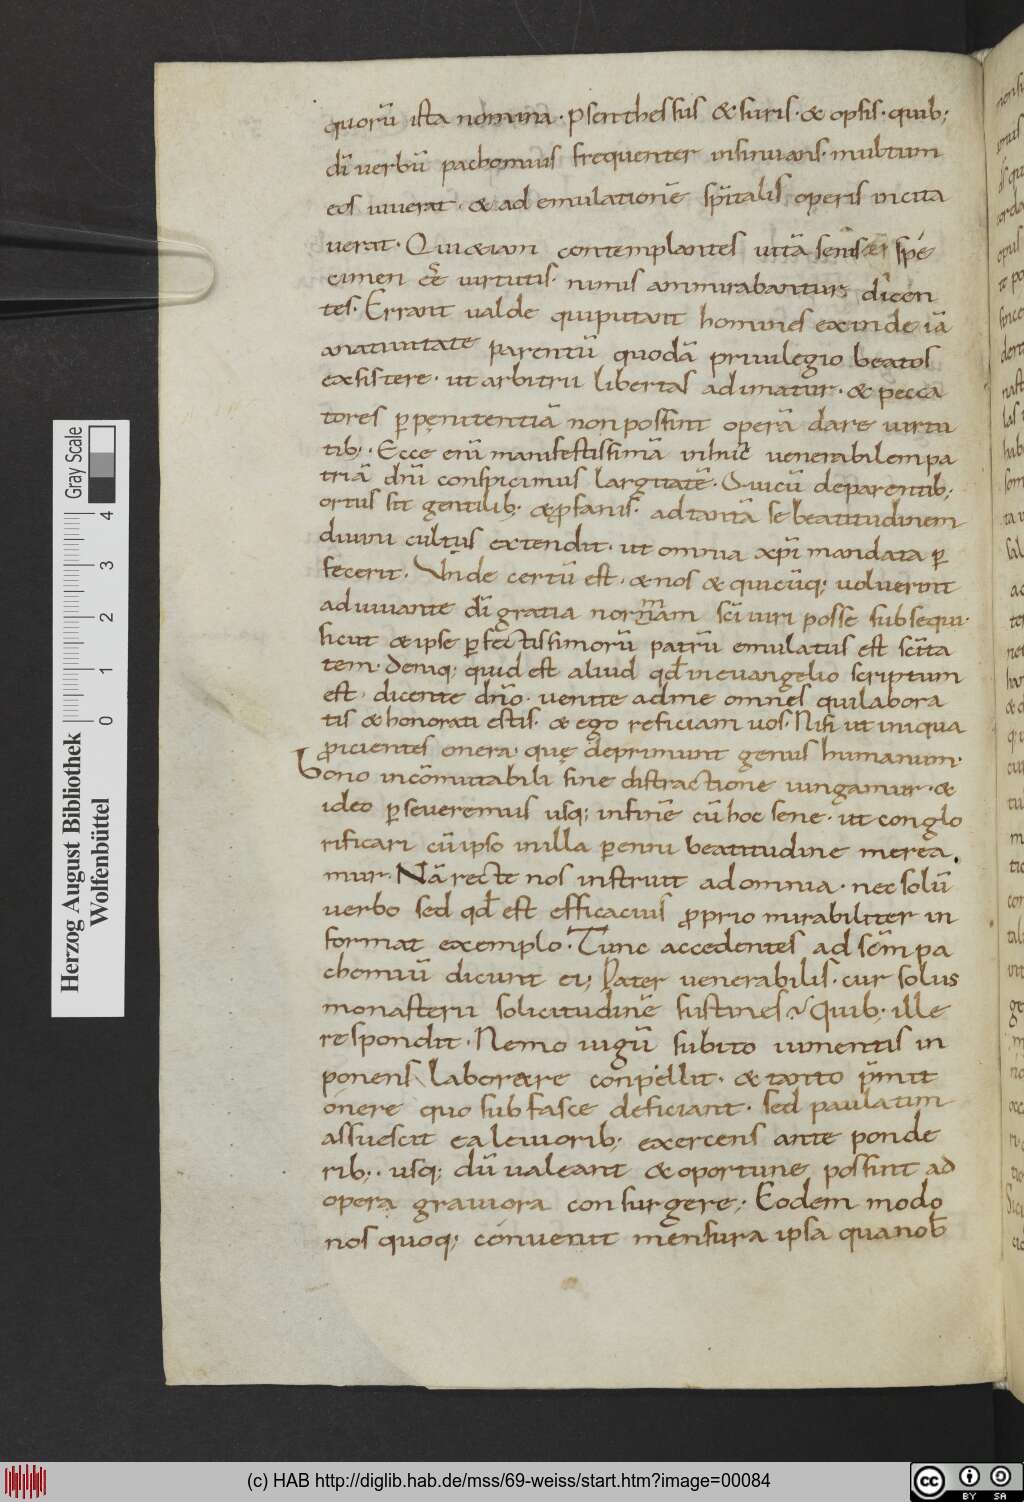 quorū ista nomina· psenthessus & suris· & opsis· quib;
dī verbū pachomius frequenter insinuans· multum
eos iuuerat· & ad emulationē spitalis operis incita
uerat· Qui & iam contemplantes uitā senis & spē
cimen cē̄ uirtutis· nimis ammirabantur dicen
tes· Errant ualde qui putant homines exinde iā
a natiuitate parentū quodā priuilegio beatos
exsistere· ut arbitrii libertas adimatur· & pecca
tores p penitentiā non possint operā dare uirtu
tib;· Ecce enī manifestissimā in hunc venerabilem pa
triā dnī conspicimus largitatē· Qui cū de parentib;
ortus sit gentilib; & pfanis· ad tantā se beatitudinem
diuini cultus extendit· ut omnia xpi mandata p
fecerit· Unde certū est· & nos & quicūq; voluerint
adiuuante dī gratia normam sci uiri posse subsequi·
sicut & ipse pfectissimorū patrū emulatus est scīta
tem· Deniq; quid est aliud qđ in euangelio scriptum
est· dicente dnō· uenite ad me omnes qui labora
tis & honorati estis· & ego reficiam uos· Nisi ut iniqua
proicientes onera· que deprimunt genus humanum·
bono incōmutabili sine distractione iungamur· &
ideo pseueremus usq; in finē cū hoc sene· ut conglo
rificari cū ipso in illa penni beatitudine merea
mur· Nā recte nos instruit ad omnia· nec solū
uerbo sed qđ est efficacius proprio mirabiliter in
format exemplo· Tunc accedentes ad scm̄ pa
chomiū dicunt ei; Pater uenerabilis· cur solus
monasterii solicitudinē sustines? Quib; ille
respondit· Nemo iugū subito iumentis in
ponens laborare conpellit· & tanto pmit
onere quo sub fasce deficiant· sed paulatim
assuescit ea leuiorib; exercens ante ponde
rib;· usq; dū ualeant & oportune possint ad
opera grauiora consurgere; Eodem modo
nos quoq; conuenit mensura ipsa qua nob̄
Herzog August Bibliothek
Wolfenbüttel
Gray Scale
0 1 2 3 4
(c) HAB http://diglib.hab.de/mss/69-weiss/start.htm?image=00084
cc BY SA